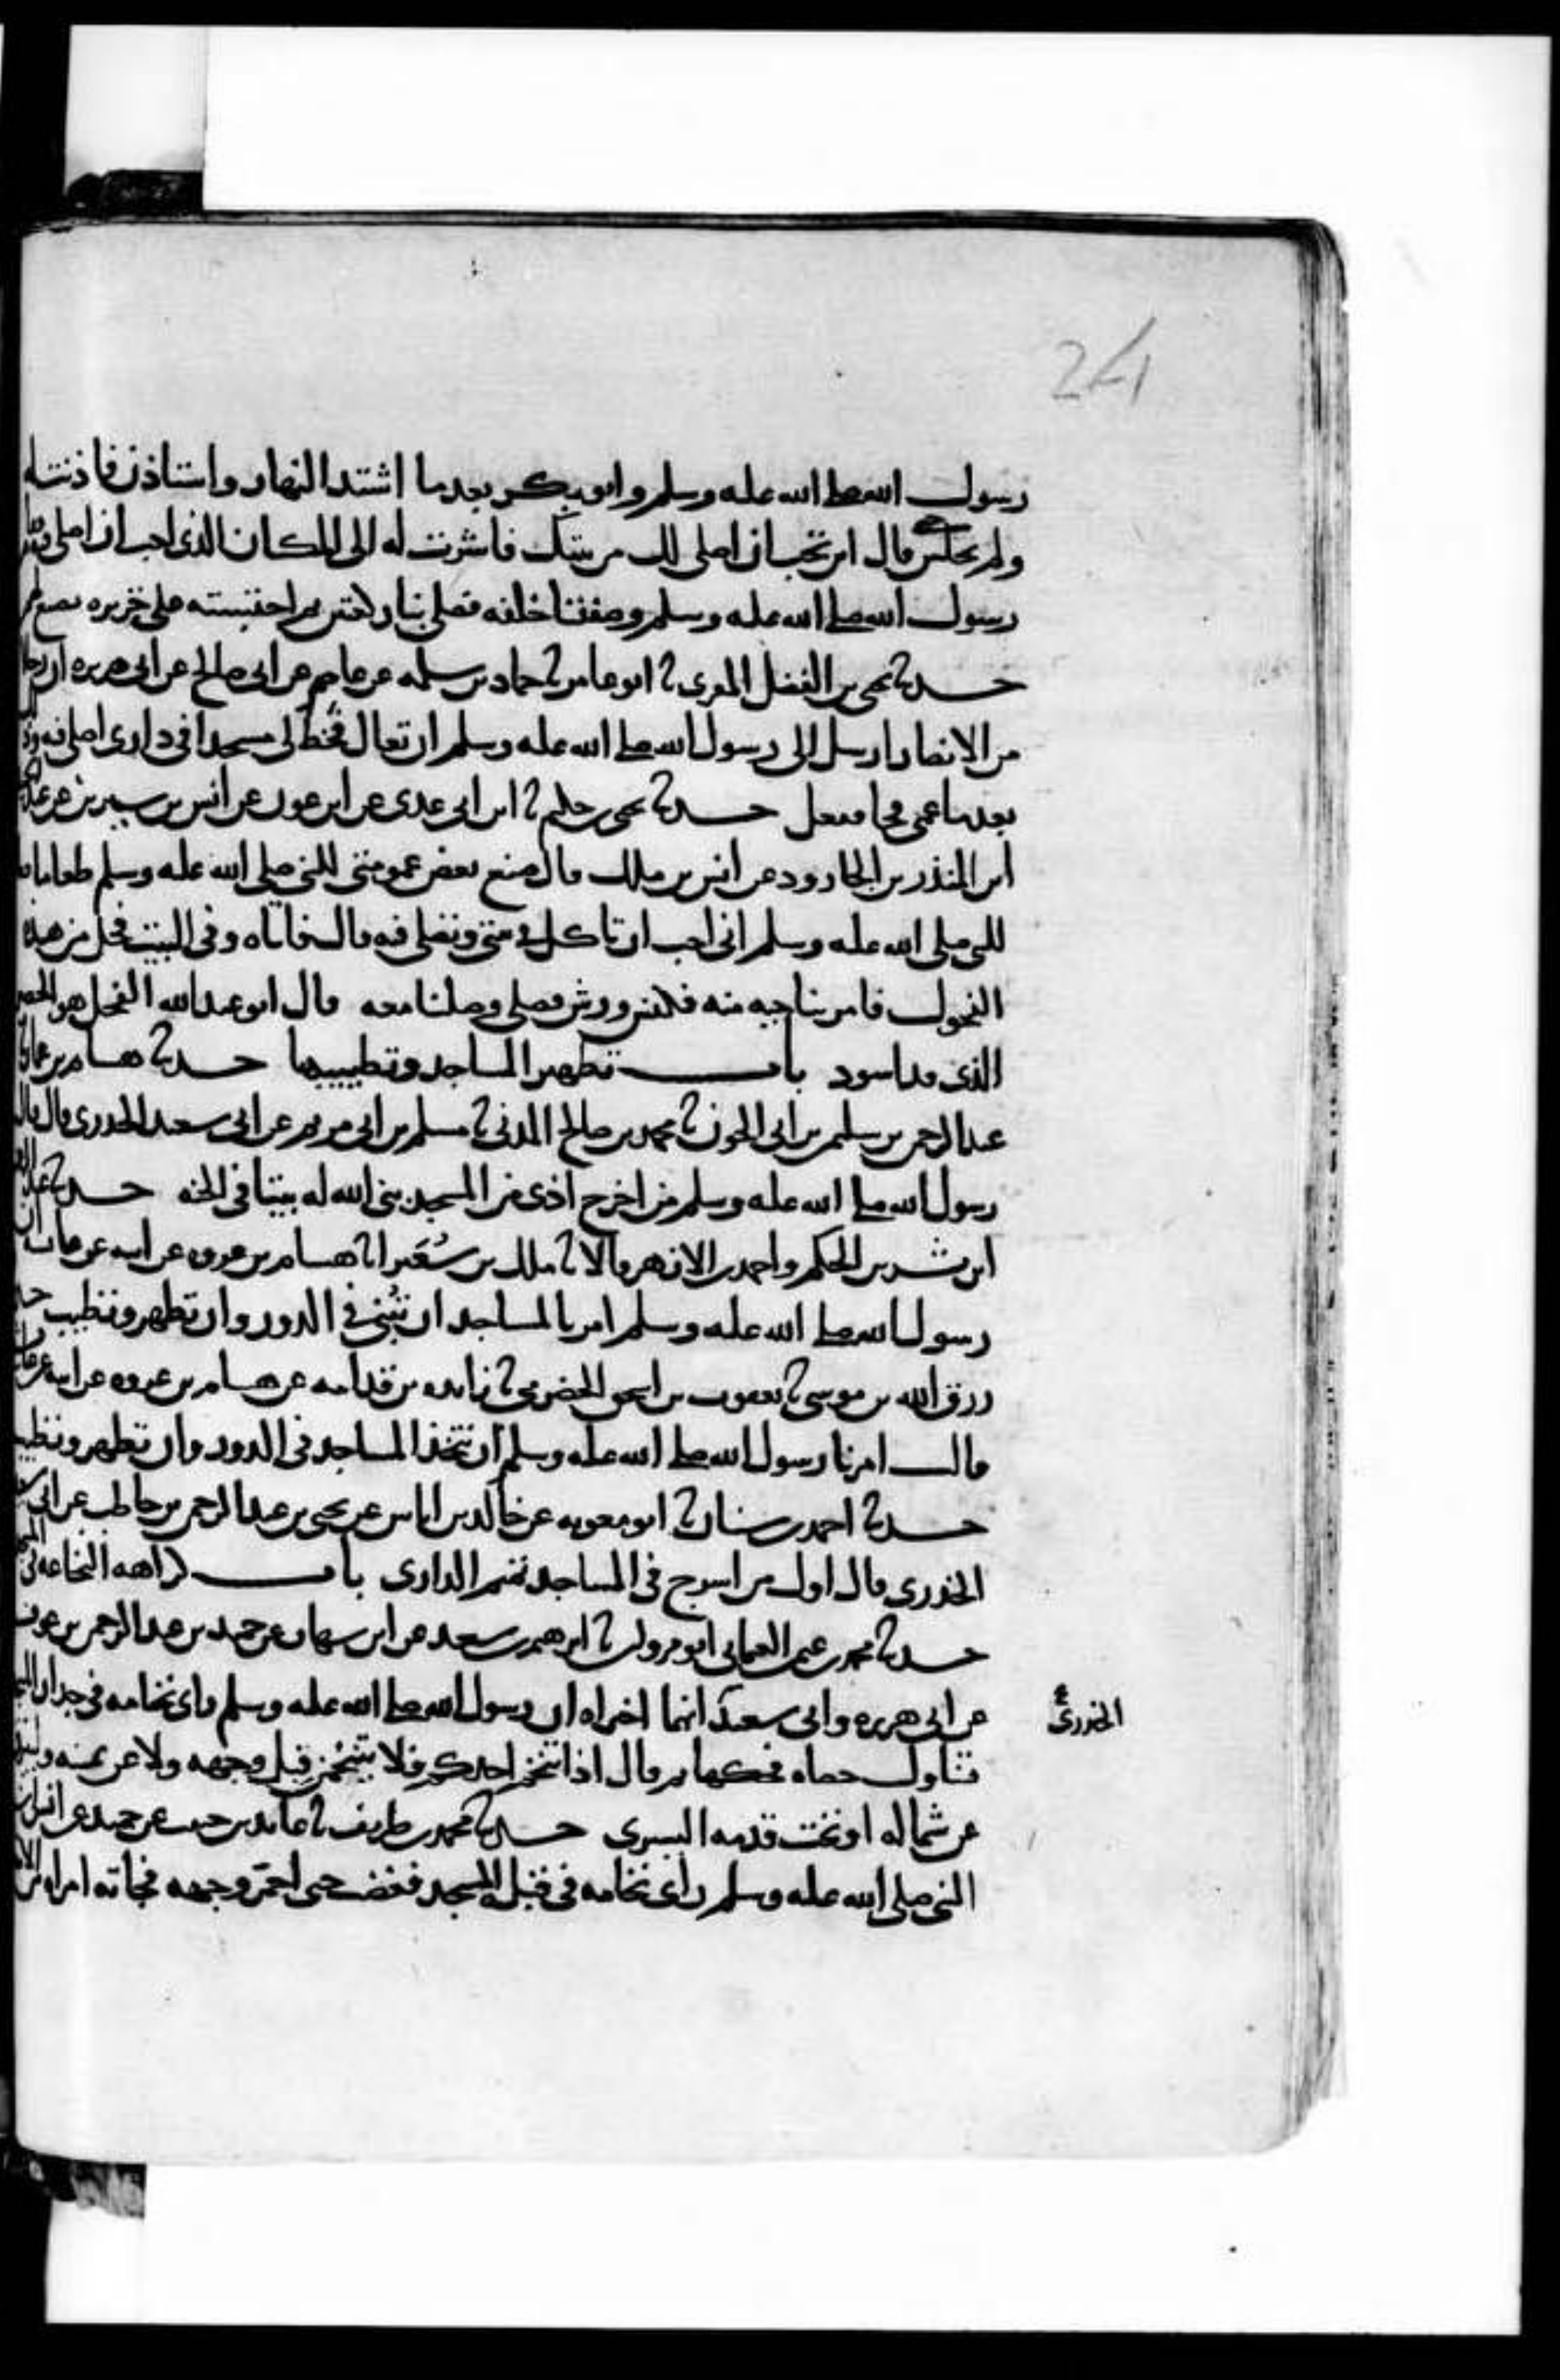 24
رسول الله صلى الله عليه وسلم وابو بكر بعدما اشتد النهار واستاذن فاذنت له
ولم يجلس حتى قال اين تحب ان اصلي لك من بيتك فاشرت له الى المكان الذي احب ان اصلي فيه
رسول الله صلى الله عليه وسلم وصففنا خلفه فصلى بنا ركعتين ثم احتبسته على خزيره تصنع لهم
حدثنا يحيى بن الفضل المقري نا ابو عامر نا حماد بن سلمه عن عاصم عن ابي صالح عن ابي هريره ان رجلا
من الانصار ارسل الى رسول الله صلى الله عليه وسلم ان تعال فخط لي مسجدا في داري اصلي فيه وذلك
بعدما عمي فجا ففعل حدثنا يحيى بن حكيم نا ابن ابي عدي عن ابن عون عن انس بن سيرين عن عبد
ابن المنذر بن الجارود عن انس بن ملك قال صنع بعض عمومتي للنبي صلى الله عليه وسلم طعاما
للنبي صلى الله عليه وسلم اني احب ان تاكل في بيتي وتصلي فيه قال فاتاه وفي البيت فحل من هذه
الفحول فامر بناحيه منه فكنس ورش فصلى وصلينا معه قال ابو عبد الله الفحل هو الحصير
الذي قد اسود باب تطهير المساجد وتطييبها حدثنا هشام بن عمار نا
عبد الرحمن بن سليمن بن ابي الجون نا محمد بن صالح المدني نا مسلم بن ابي مريم عن ابي سعيد الخدري قال قال
رسول الله صلى الله عليه وسلم من اخرج اذى من المسجد بنى الله له بيتا في الجنه حدثنا عبد الرحمن
ابن بشر بن الحكم واحمد بن الازهر قالا نا ملك بن سُعَير انا هشام بن عروه عن ابيه عن عائشه ان
رسول الله صلى الله عليه وسلم امر بالمساجد ان تُبنى في الدور وان تطهر وتطيب حدثنا
رزق الله بن موسى نا يعقوب بن اسحق الحضرمي نا زايده بن قدامه عن هشام بن عروه عن ابيه عن عائشه
قالت امرنا رسول الله صلى الله عليه وسلم ان نتخذ المساجد في الدور وان تطهر وتطيب
حدثنا احمد بن سنان نا ابو معويه عن خالد بن اياس عن يحيى بن عبد الرحمن بن حاطب عن ابي سعيد
الخدري قال اول من اسرج في المساجد تميم الداري باب كراهه النخاعه في المسجد
حدثنا محمد بن عثمن العثماني ابو مروان نا ابرهيم بن سعد عن ابن شهاب عن حميد بن عبد الرحمن بن عوف
عن ابي هريره وابي سعيد انهما اخبراه ان رسول الله صلى الله عليه وسلم راى نخامه في جدار المسجد
الخدري
فتناول حصاه فحكها ثم قال اذا تنخم احدكم فلا يتنخمن قِبل وجهه ولا عن يمينه وليبزق
عن شماله او تحت قدمه اليسرى حدثنا محمد بن طريف نا عائذ بن حبيب عن حميد عن انس ان
النبي صلى الله عليه وسلم راى نخامه في قبله المسجد فغضب حتى احمرّ وجهه فجاته امراه من الانصار